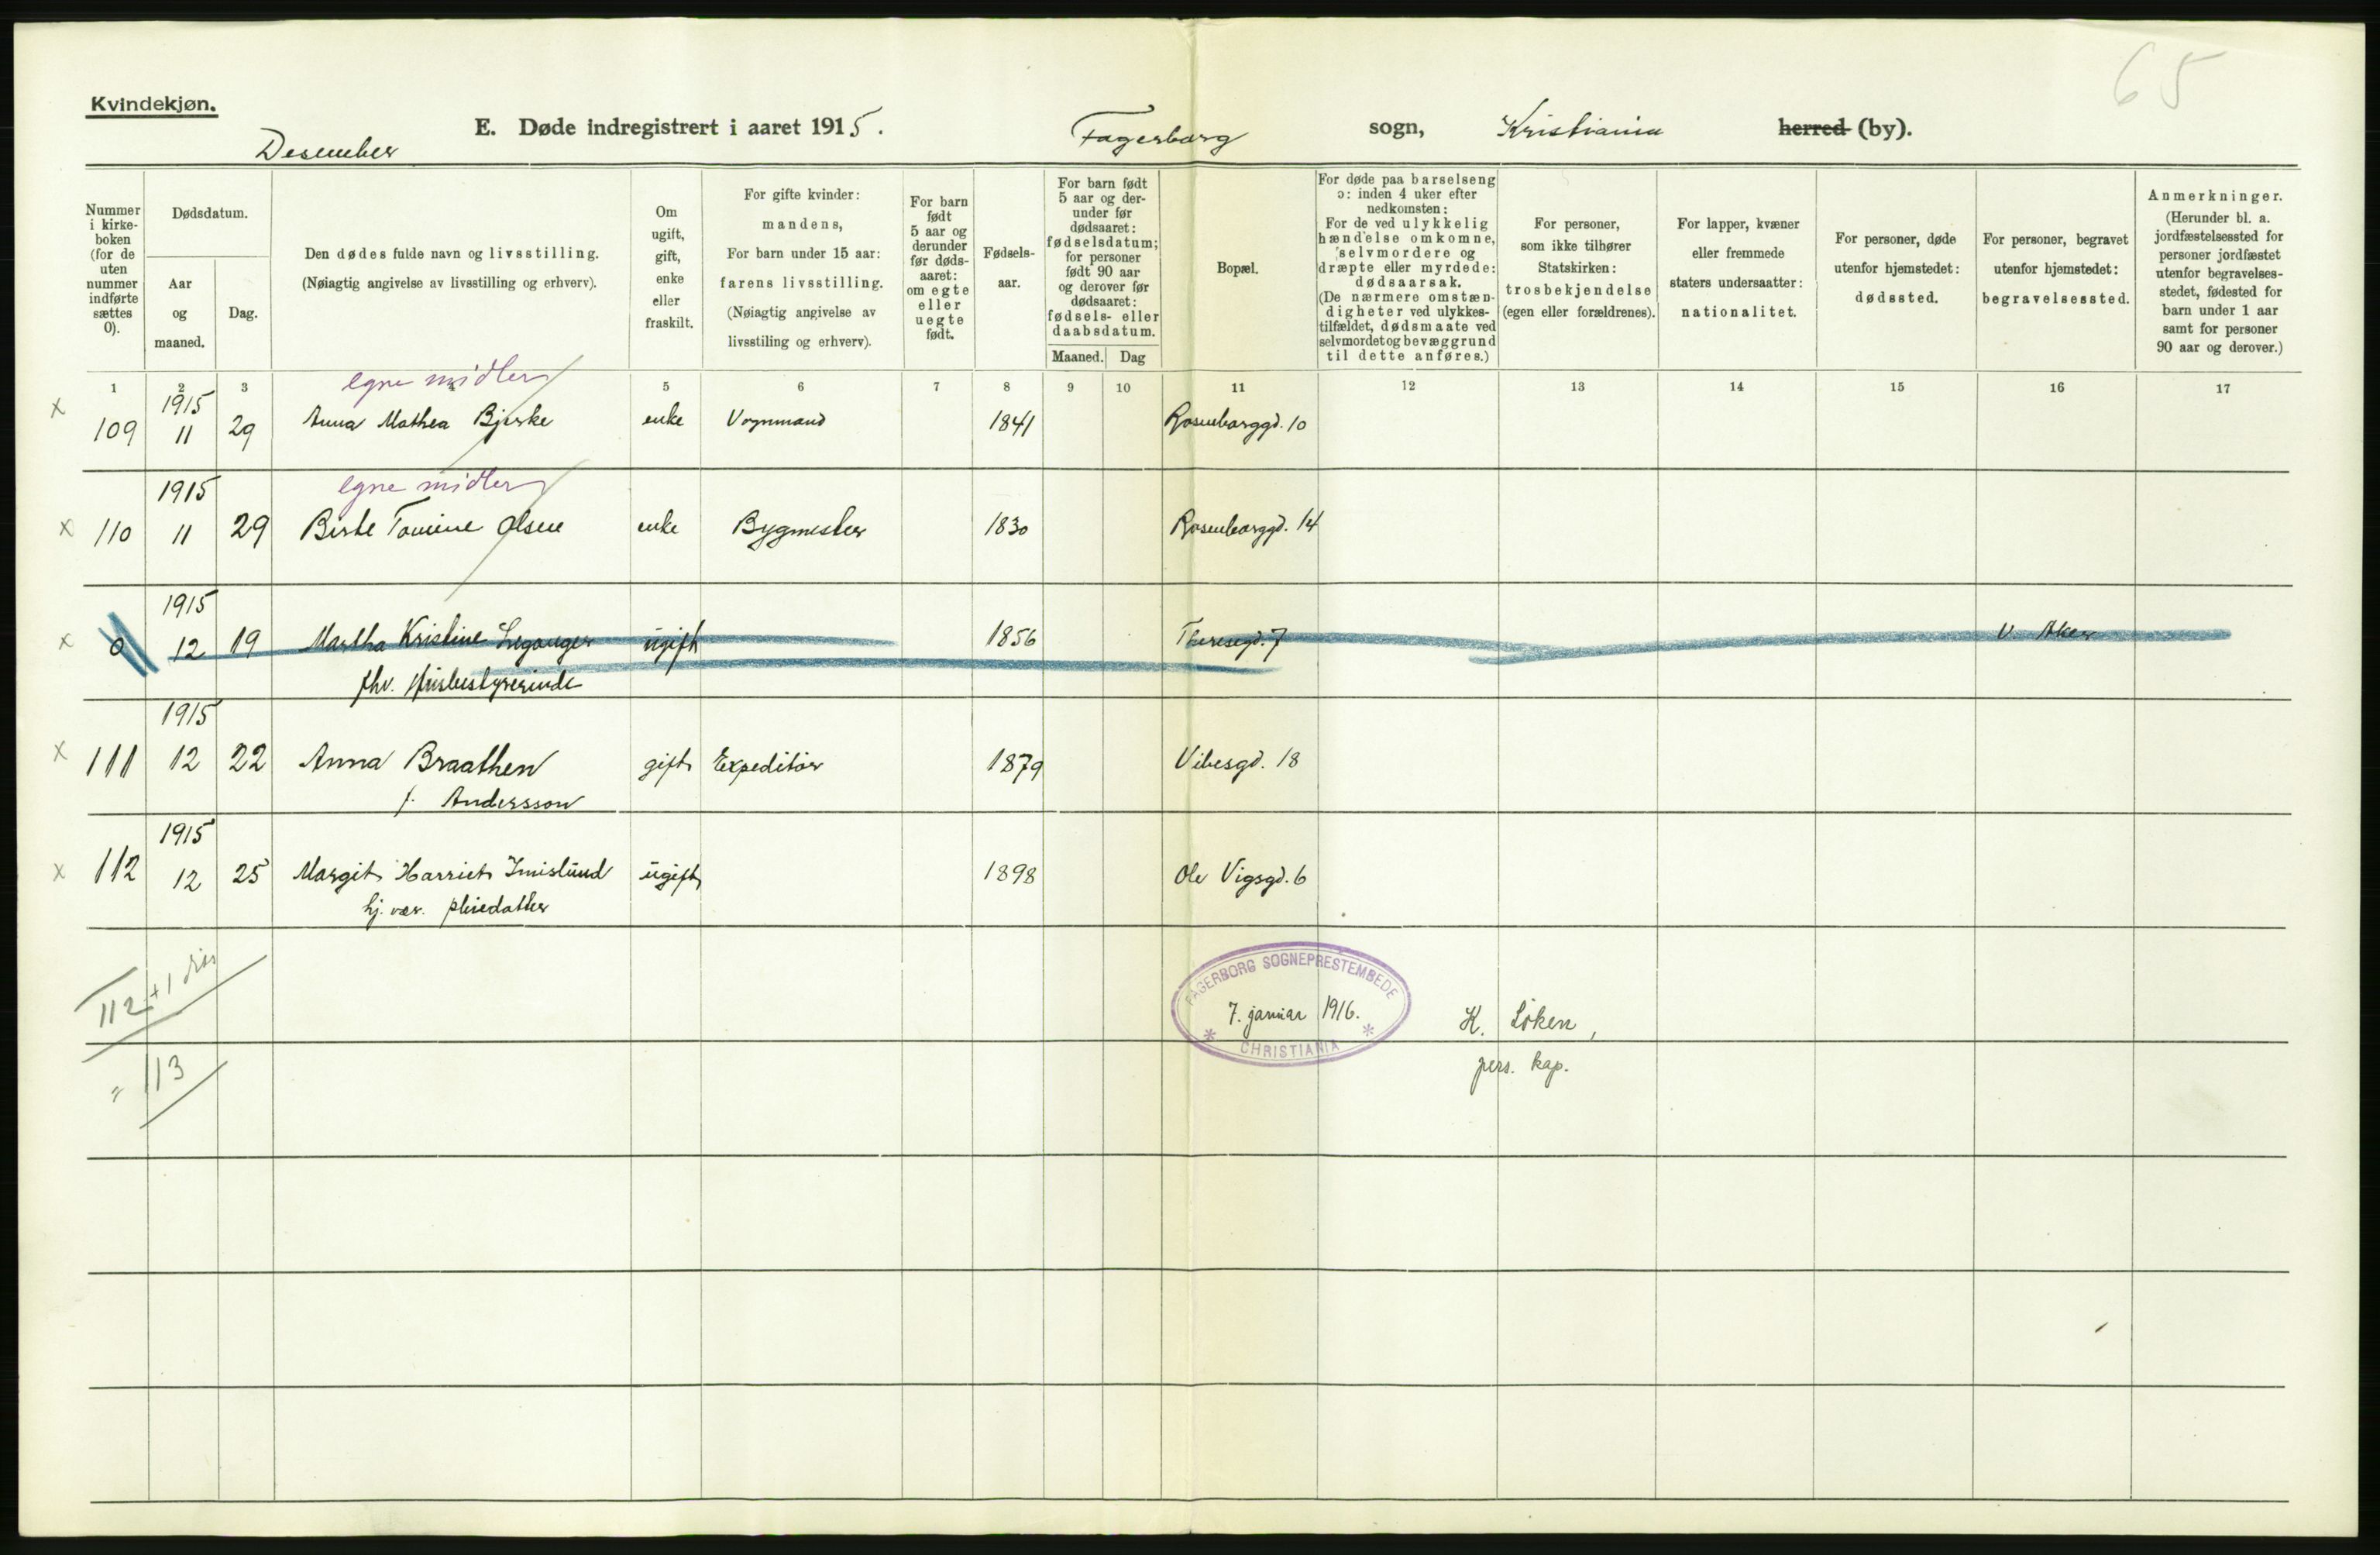 65
Kvindekjøn.
E. Døde indregistrert i aaret 1915. Fagerborg sogn, Kristiania herred (by).
Desember
Nummer i kirke-boken (for de uten nummer indførte sættes 0).
Dødsdatum.
Aar og maaned.
Dag.
Den dødes fulde navn og livsstilling.
(Nøiagtig angivelse av livsstilling og erhverv).
Om ugift, gift, enke eller fraskilt.
For gifte kvinder:
mandens,
For barn under 15 aar:
farens livsstilling.
(Nøiagtig angivelse av
livsstiling og erhverv).
For barn født 5 aar og derunder før døds-aaret: om egte eller uegte født.
Fødsels-aar.
For barn født 5 aar og der-under før dødsaaret: fødselsdatum; for personer født 90 aar og derover før dødsaaret: fødsels- eller daabsdatum.
Maaned. Dag
Bopæl.
For døde paa barselseng ɔ: inden 4 uker efter nedkomsten: For de ved ulykkelig hændelse omkomne, selvmordere og dræpte eller myrdede: dødsaarsak. (De nærmere omstæn-digheter ved ulykkes-tilfældet, dødsmaate ved selvmordet og bevæggrund til dette anføres.)
For personer, som ikke tilhører Statskirken: trosbekjendelse (egen eller forældrenes).
For lapper, kvæner eller fremmede staters undersaatter: nationalitet.
For personer, døde utenfor hjemstedet: dødssted.
For personer, begravet utenfor hjemstedet: begravelsessted.
Anmerkninger.
(Herunder bl. a. jordfæstelsessted for personer jordfæstet utenfor begravelses-stedet, fødested for barn under 1 aar samt for personer 90 aar og derover.)
1 2 3 4 5 6 7 8 9 10 11 12 13 14 15 16 17
egne midler
1915
x 109 11 29 Anna Mathea Bjerke enke Vognmand 1841 Rosenborggd. 10
1915 egne midler
x 110 11 29 Birte Tomine Olsen enke Bygmester 1830 Rosenborggd. 14
1915
x 0 12 19 Martha Kristine Leganger ugift 1856 Theresegd. 7 V. Aker
fhv. Husbestyrerinde
1915
x 111 12 22 Anna Braathen gift Expeditør 1879 Vibesgd. 18
f. Andersson
1915
x 112 12 25 Margit Harriet Imislund ugift 1898 Ole Vigsgd. 6
hj. vær. pleiedatter
112 + 1
= 113
FAGERBORG SOGNEPRESTEMBEDE
7. januar 1916.
* CHRISTIANIA *
K. Löken,
pers. kap.